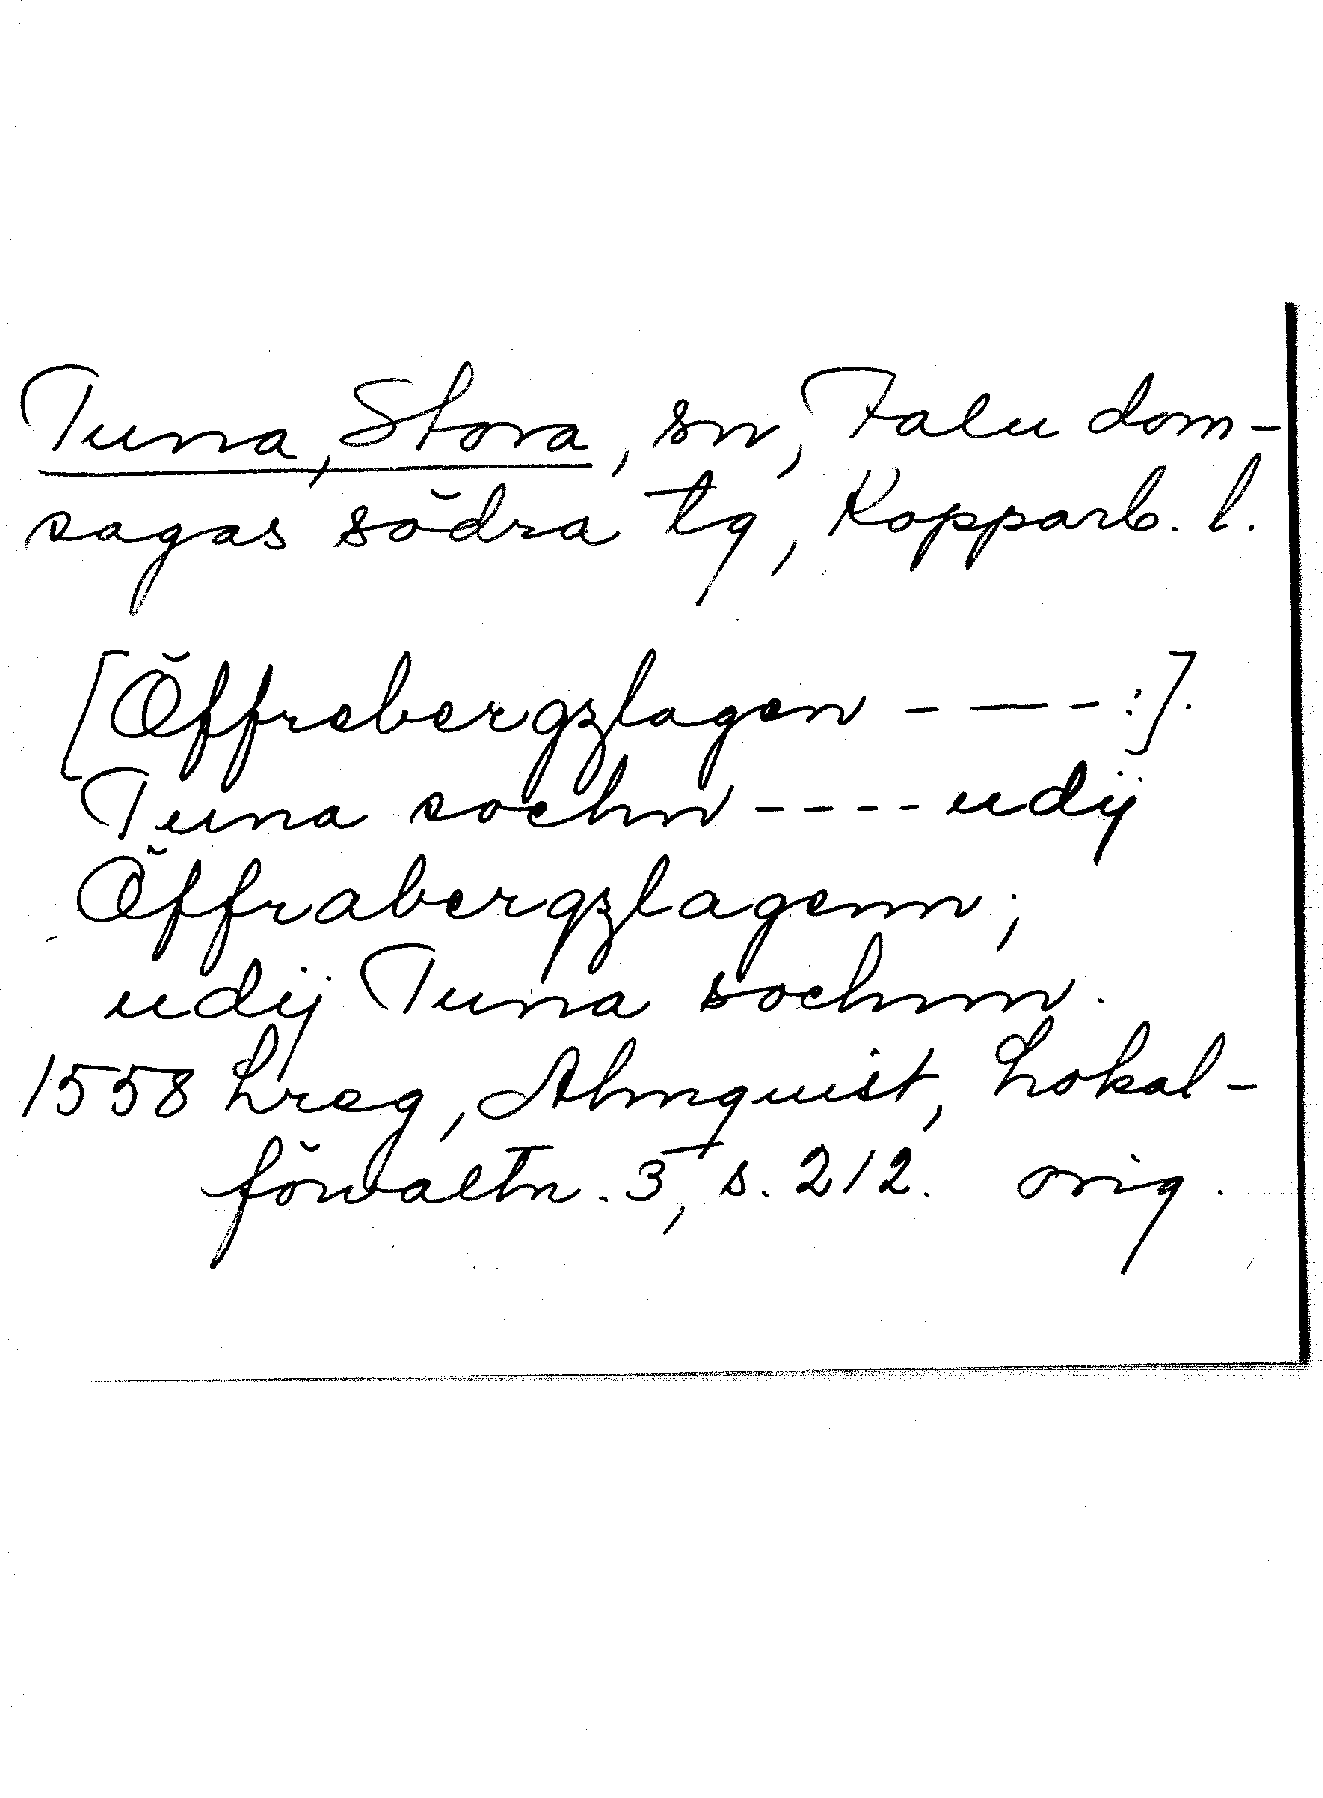 Tuna, Stora, sn, Falu dom-
sagas södra tg, Kopparb. l.
[Öffrebergzlagen - — - :].
Tuna sochn - - - - udij
Öffrabergzlagenn;
udij Tuna sochnnn.
1558 Lreg, Almquist, Lokal-
förvaltn. 3, s. 212. orig.